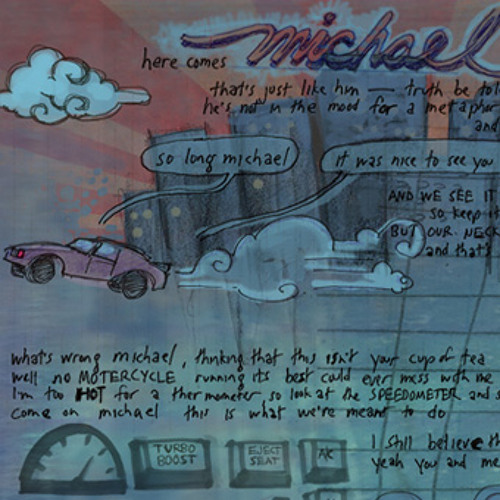 here comes michael
that's just like him — truth be tol
he's not in the mood for a metaphor
and
so long michael
it was nice to see you
AND WE SEE IT
so keep it
BUT OUR NECK
and that's
what's wrong michael, thinking that this isn't your cup of tea
well no MOTERCYCLE running its best could ever mess with me
I'm too HOT for a thermometer, so look at the SPEEDOMETER and s
come on michael this is what we're meant to do
TURBO BOOST
EJECT SEAT
A/C
I still believe th
yeah you and me